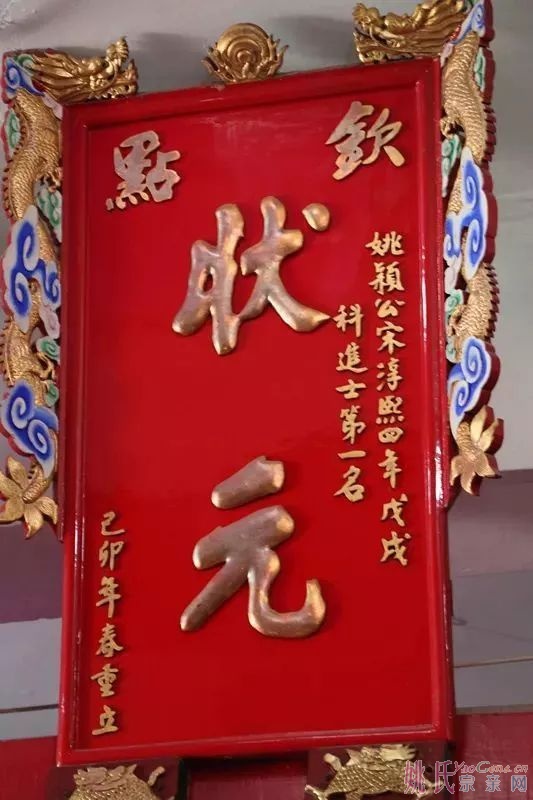 欽點
姚穎公宋淳熙四年戊戌
科進士第一名
狀元
己卯年春重立
姚氏宗亲网
YaoGens.cn